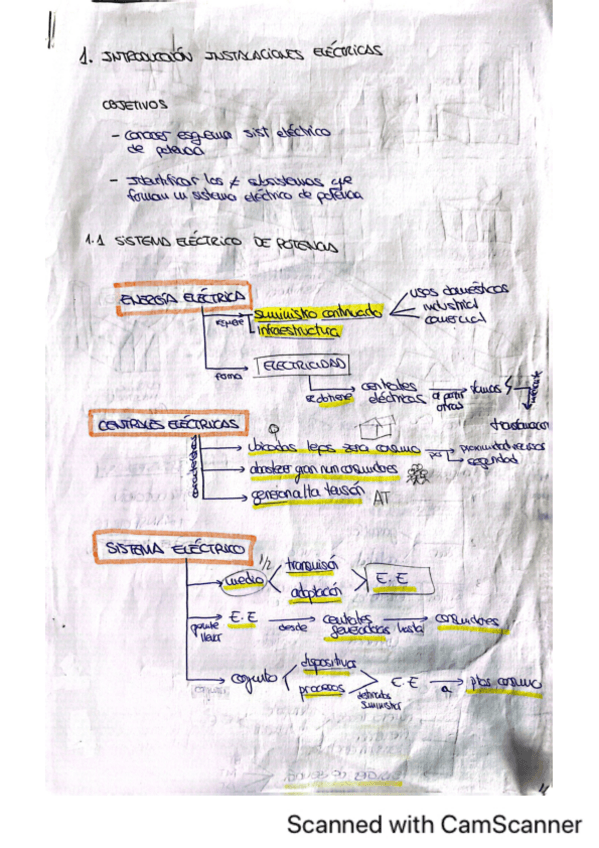 1. INTRODUCCIÓN INSTALACIONES ELÉCTRICAS
OBJETIVOS
- conocer esquema sist eléctrico
de potencia
- Identificar los ≠ subsistemas que
forman un sistema eléctrico de potencia
1.1 SISTEMA ELÉCTRICO DE POTENCIA
ENERGÍA ELÉCTRICA
requiere
suministro continuado
infraestructura
usos domésticos
industrial
comercial
forma
ELECTRICIDAD
se obtiene
centrales
eléctricas
a partir
otras
formas
mediante
transformación
CENTRALES ELÉCTRICAS
características
ubicadas lejos zona consumo
por
proximidad recursos
seguridad
abastecer gran num consumidores
generan alta tensión AT
SISTEMA ELÉCTRICO
1/2
medio
transmisión
adaptación
E.E
permite
llevar
E.E
desde
centrales
generadoras
hasta
consumidores
conjunto
dispositivos
procesos
destinados
suministrar
E.E
a
ptos consumo
Scanned with CamScanner